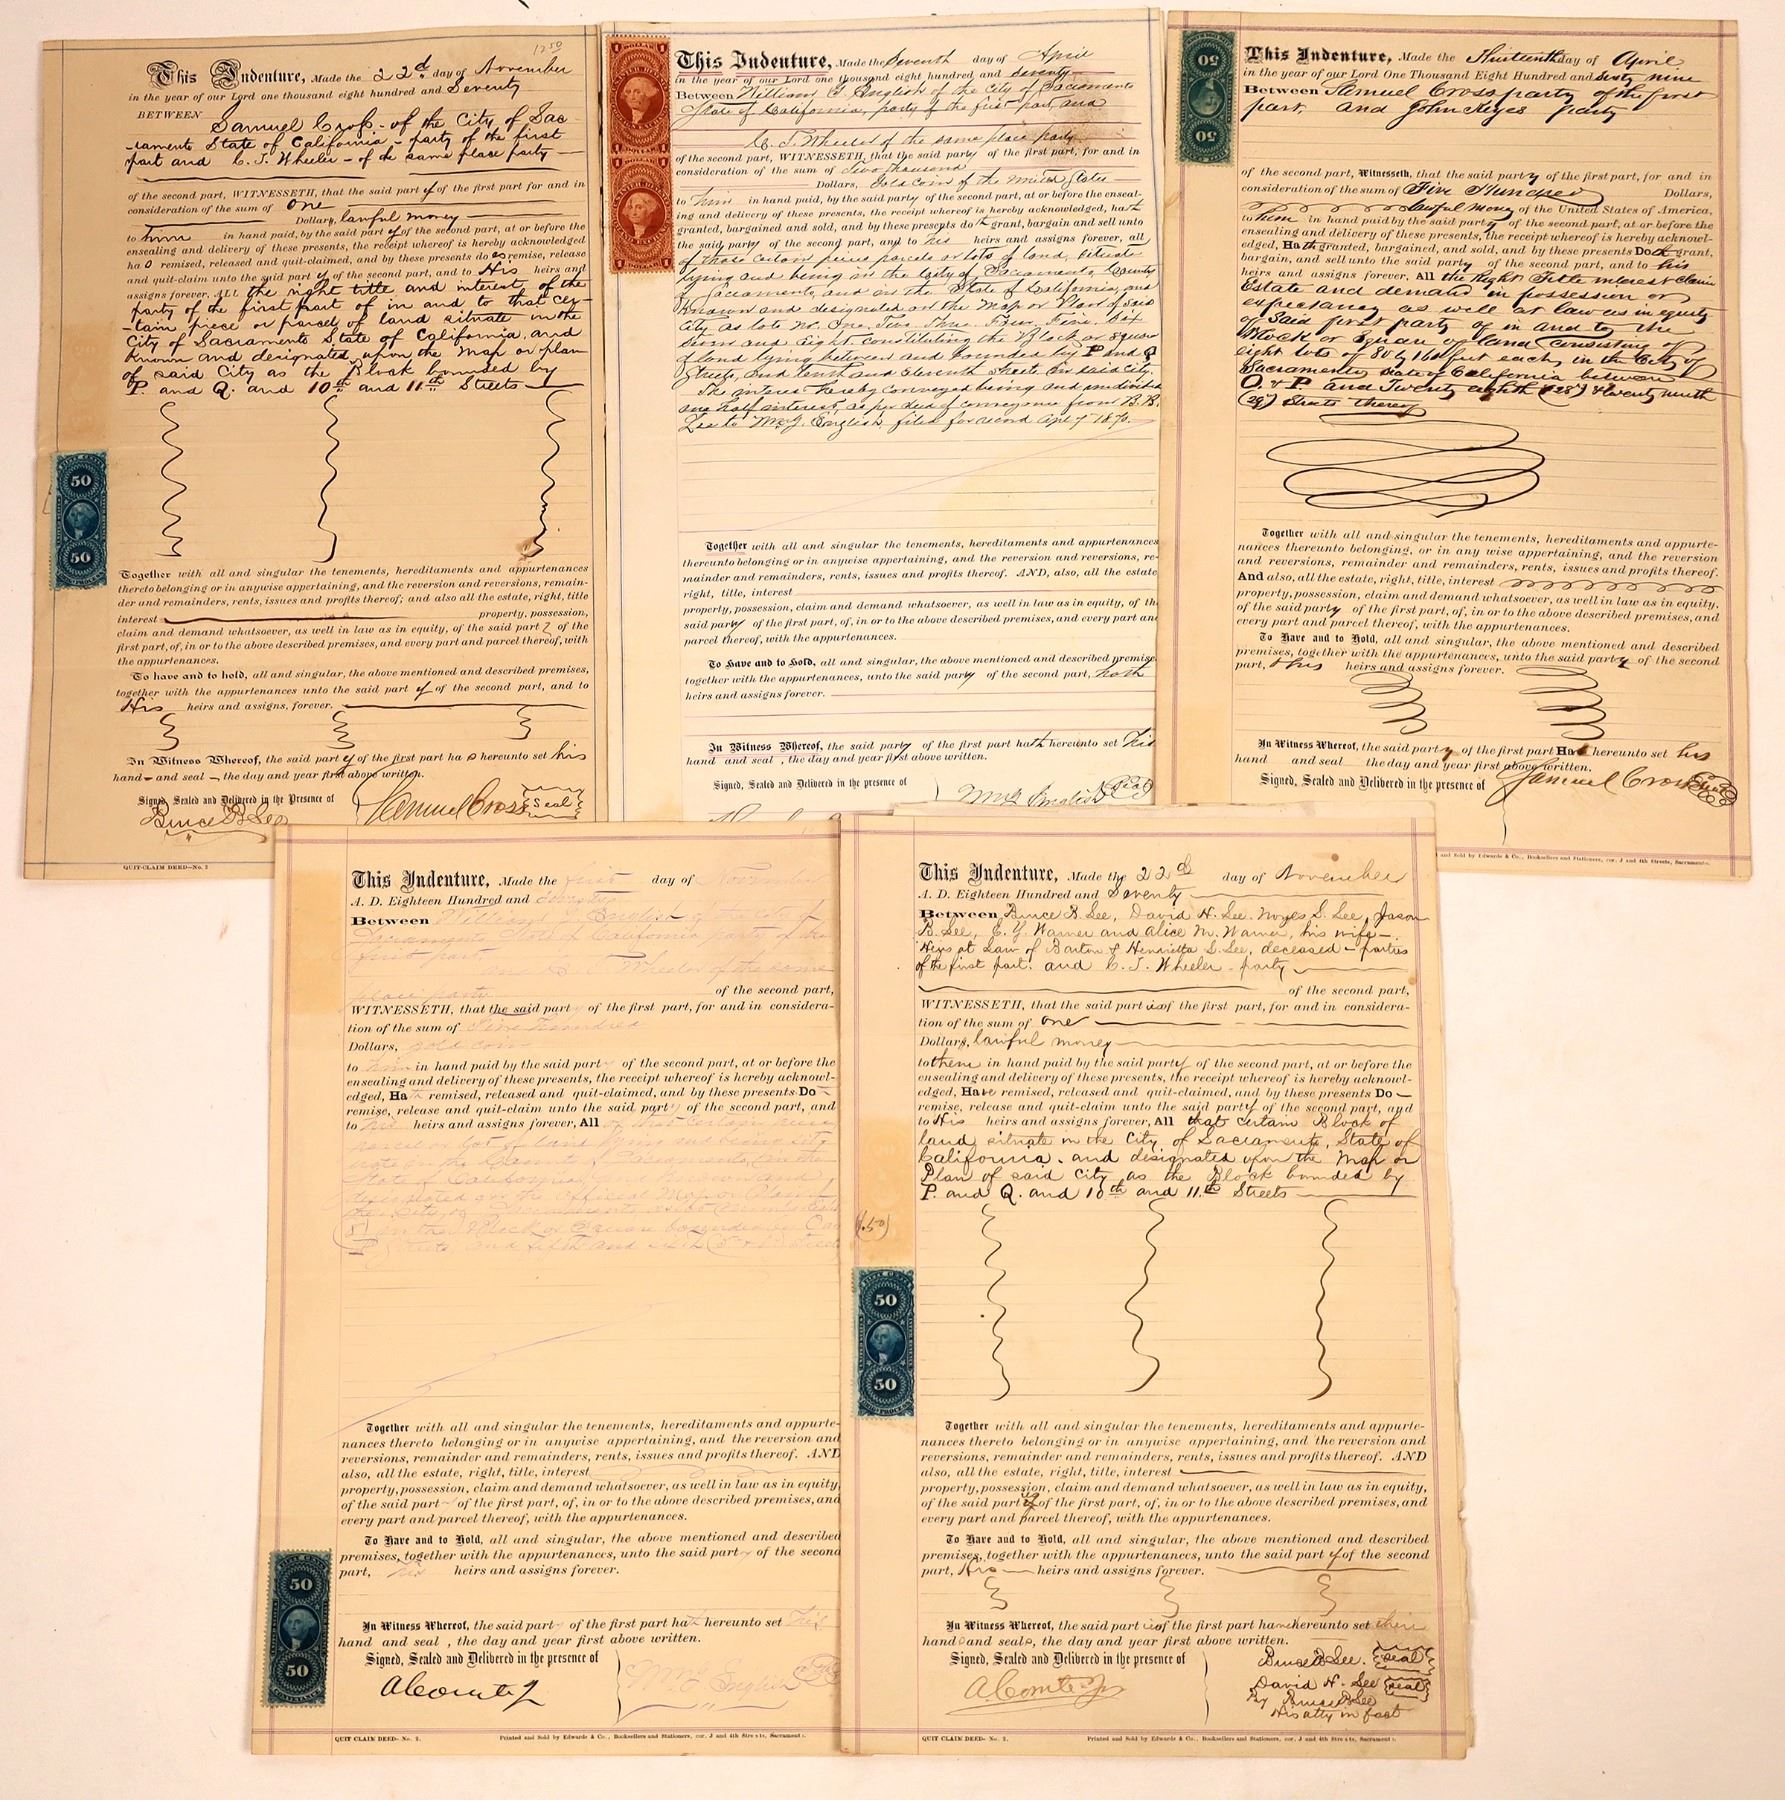 12 50
This Indenture, Made the 22d day of November
in the year of our Lord one thousand eight hundred and Seventy
BETWEEN Samuel Cross - of the City of Sac-
-ramento State of California - party of the first
part and C. T. Wheeler - of the same place party -
of the second part, WITNESSETH, that the said party of the first part for and in
consideration of the sum of one
Dollars, lawful money
to him in hand paid, by the said party of the second part, at or before the
ensealing and delivery of these presents, the receipt whereof is hereby acknowledged
has remised, released and quit-claimed, and by these presents does remise, release
and quit-claim unto the said party of the second part, and to His heirs and
assigns forever. All the right title and interest of the
party of the first part of in and to that cer-
-tain piece or parcel of land situate in the
City of Sacramento State of California, and
known and designated upon the Map or plan
of said City as the Block bounded by
P. and Q. and 10th and 11th Streets
50
50
Together with all and singular the tenements, hereditaments and appurtenances
thereto belonging or in anywise appertaining, and the reversion and reversions, remain-
der and remainders, rents, issues and profits thereof; and also all the estate, right, title
interest property, possession,
claim and demand whatsoever, as well in law as in equity, of the said party of the
first part, of, in or to the above described premises, and every part and parcel thereof, with
the appurtenances.
To have and to hold, all and singular, the above mentioned and described premises,
together with the appurtenances unto the said party of the second part, and to
His heirs and assigns, forever.
In Witness Whereof, the said party of the first part has hereunto set his
hand - and seal -, the day and year first above written.
Signed, Sealed and Delivered in the presence of
Bruce B Lee
Samuel Cross Seal
QUIT-CLAIM DEED-No. 2
1 DOLLAR 1
This Indenture, Made the Seventh day of April
in the year of our Lord one thousand eight hundred and seventy
Between William J. English of the City of Sacramento
State of California, party of the first part, and
C. T. Wheeler of the same place party
of the second part, WITNESSETH, that the said party of the first part, for and in
consideration of the sum of Two Thousand
Dollars, Gold Coin of the United States
to him in hand paid, by the said party of the second part, at or before the enseal-
ing and delivery of these presents, the receipt whereof is hereby acknowledged, hath
granted, bargained and sold, and by these presents doth grant, bargain and sell unto
the said party of the second part, and to his heirs and assigns forever, all
of those certain pieces parcels or lots of land, situate
lying and being in the City of Sacramento, County
of Sacramento, and in the State of California, and
known and designated on the Map or Plan of said
City as lots No. One, Two, Three, Four, Five, Six
Seven and Eight constituting the Block or square
of land lying between and bounded by P and Q
Streets, and tenth and eleventh Streets in said City.
The interest hereby conveyed being an undivided
one half interest, as per deed of conveyance from B. B.
Lee to Wm J. English filed for record Apl 7 1870.
Together with all and singular the tenements, hereditaments and appurtenances
thereunto belonging or in anywise appertaining, and the reversion and reversions, re-
mainder and remainders, rents, issues and profits thereof. AND, also, all the estate
right, title, interest
property, possession, claim and demand whatsoever, as well in law as in equity, of th
said party of the first part, of, in or to the above described premises, and every part an
parcel thereof, with the appurtenances.
To Have and to Hold, all and singular, the above mentioned and described premise
together with the appurtenances, unto the said party of the second part,
heirs and assigns forever.
In Witness Whereof, the said party of the first part hath hereunto set his
hand and seal, the day and year first above written.
Signed, Sealed and Delivered in the presence of
Wm J English Seal
50
50
This Indenture, Made the Thirteenth day of April
in the year of our Lord One Thousand Eight Hundred and sixty nine
Between Samuel Cross party of the first
part, and John Keyes party
of the second part, Witnesseth, that the said party of the first part, for and in
consideration of the sum of Five Hundred Dollars,
lawful money of the United States of America,
to him in hand paid by the said party of the second part, at or before the
ensealing and delivery of these presents, the receipt whereof is hereby acknowl-
edged, Hath granted, bargained, and sold, and by these presents Doth grant,
bargain, and sell unto the said party of the second part, and to his
heirs and assigns forever. All the Right Title interest Claim
Estate and demand in possession or
expectancy as well at law as in equity
of Said first party of in and to the
Block or Square of land Consisting of
Eight lots of 80 by 160 feet each, in the City of
Sacramento State of California between
O. & P. and Twenty eighth (28th) & twenty ninth
(29) Streets thereof
Together with all and singular the tenements, hereditaments and appurte-
nances thereunto belonging, or in any wise appertaining, and the reversion
and reversions, remainder and remainders, rents, issues and profits thereof.
And also, all the estate, right, title, interest
property, possession, claim and demand whatsoever, as well in law as in equity,
of the said party of the first part, of, in or to the above described premises, and
every part and parcel thereof, with the appurtenances.
To Have and to Hold, all and singular, the above mentioned and described
premises, together with the appurtenances, unto the said party of the second
part, & his heirs and assigns forever.
In Witness Whereof, the said party of the first part Has hereunto set his
hand and seal the day and year first above written.
Signed, Sealed and Delivered in the presence of
Samuel Cross Seal
and Sold by Edwards & Co., Booksellers and Stationers, cor. J and 4th Streets, Sacramento.
This Indenture, Made the first day of Novem
A. D. Eighteen Hundred and
Between William J. English of the City of
Sacramento, State of California party of the
first part, and C. T. Wheeler of the same
place party of the second part,
WITNESSETH, that the said party of the first part, for and in considera-
tion of the sum of Five Hundred
Dollars, gold coin
to him in hand paid by the said party of the second part, at or before the
ensealing and delivery of these presents, the receipt whereof is hereby acknowl-
edged, Hath remised, released and quit-claimed, and by these presents Do
remise, release and quit-claim unto the said party of the second part, and
to his heirs and assigns forever, All of that certain piece
parcel or lot of land lying and being situ
uate in the County of Sacramento, in the
State of California, and known and
designated on the Official Map or Plan of
the City of Sacramento, as lot Number
(5) in the Block or Square bounded by O an
P Streets, and fifth and sixth (5 & 6) Streets
Together with all and singular the tenements, hereditaments and appurte-
nances thereto belonging or in anywise appertaining, and the reversion and
reversions, remainder and remainders, rents, issues and profits thereof. AND
also, all the estate, right, title, interest
property, possession, claim and demand whatsoever, as well in law as in equity,
of the said party of the first part, of, in or to the above described premises, and
every part and parcel thereof, with the appurtenances.
To Have and to Hold, all and singular, the above mentioned and described
premises, together with the appurtenances, unto the said party of the second
part, his heirs and assigns forever.
50
50
In Witness Whereof, the said party of the first part hath hereunto set his
hand and seal, the day and year first above written.
Signed, Sealed and Delivered in the presence of
A Comte Jr
Wm J English
QUIT CLAIM DEED- No. 2. Printed and Sold by Edwards & Co., Booksellers and Stationers, cor. J and 4th Streets, Sacramento.
This Indenture, Made the 22d day of November
A. D. Eighteen Hundred and Seventy
Between Bruce B. Lee, David H. Lee. Noyes S. Lee, Jason
B. Lee, E. Y. Warner and Alice M. Warner, his wife -
Heirs at Law of Barton & Henrietta S. Lee, deceased - parties
of the first part. and C. T. Wheeler - party
of the second part,
WITNESSETH, that the said parties of the first part, for and in considera-
tion of the sum of one
Dollars, lawful money
to them in hand paid by the said party of the second part, at or before the
ensealing and delivery of these presents, the receipt whereof is hereby acknowl-
edged, Have remised, released and quit-claimed, and by these presents Do -
remise, release and quit-claim unto the said party of the second part, and
to His heirs and assigns forever, All that certain Block of
land situate in the City of Sacramento, State of
California. and designated upon the Map or
Plan of said City as the Block bounded by
P. and Q. and 10th and 11th Streets
(.50)
50
50
Together with all and singular the tenements, hereditaments and appurte-
nances thereto belonging or in anywise appertaining, and the reversion and
reversions, remainder and remainders, rents, issues and profits thereof. AND
also, all the estate, right, title, interest
property, possession, claim and demand whatsoever, as well in law as in equity,
of the said parties of the first part, of, in or to the above described premises, and
every part and parcel thereof, with the appurtenances.
To Have and to Hold, all and singular, the above mentioned and described
premises, together with the appurtenances, unto the said party of the second
part, His heirs and assigns forever.
In Witness Whereof, the said parties of the first part have hereunto set their
hands and seals, the day and year first above written.
Signed, Sealed and Delivered in the presence of
A Comte Jr
Bruce B Lee. seal
David H. Lee seal
By Bruce B Lee
His atty in fact
QUIT CLAIM DEED- No. 2. Printed and Sold by Edwards & Co., Booksellers and Stationers, cor. J and 4th Streets, Sacramento.